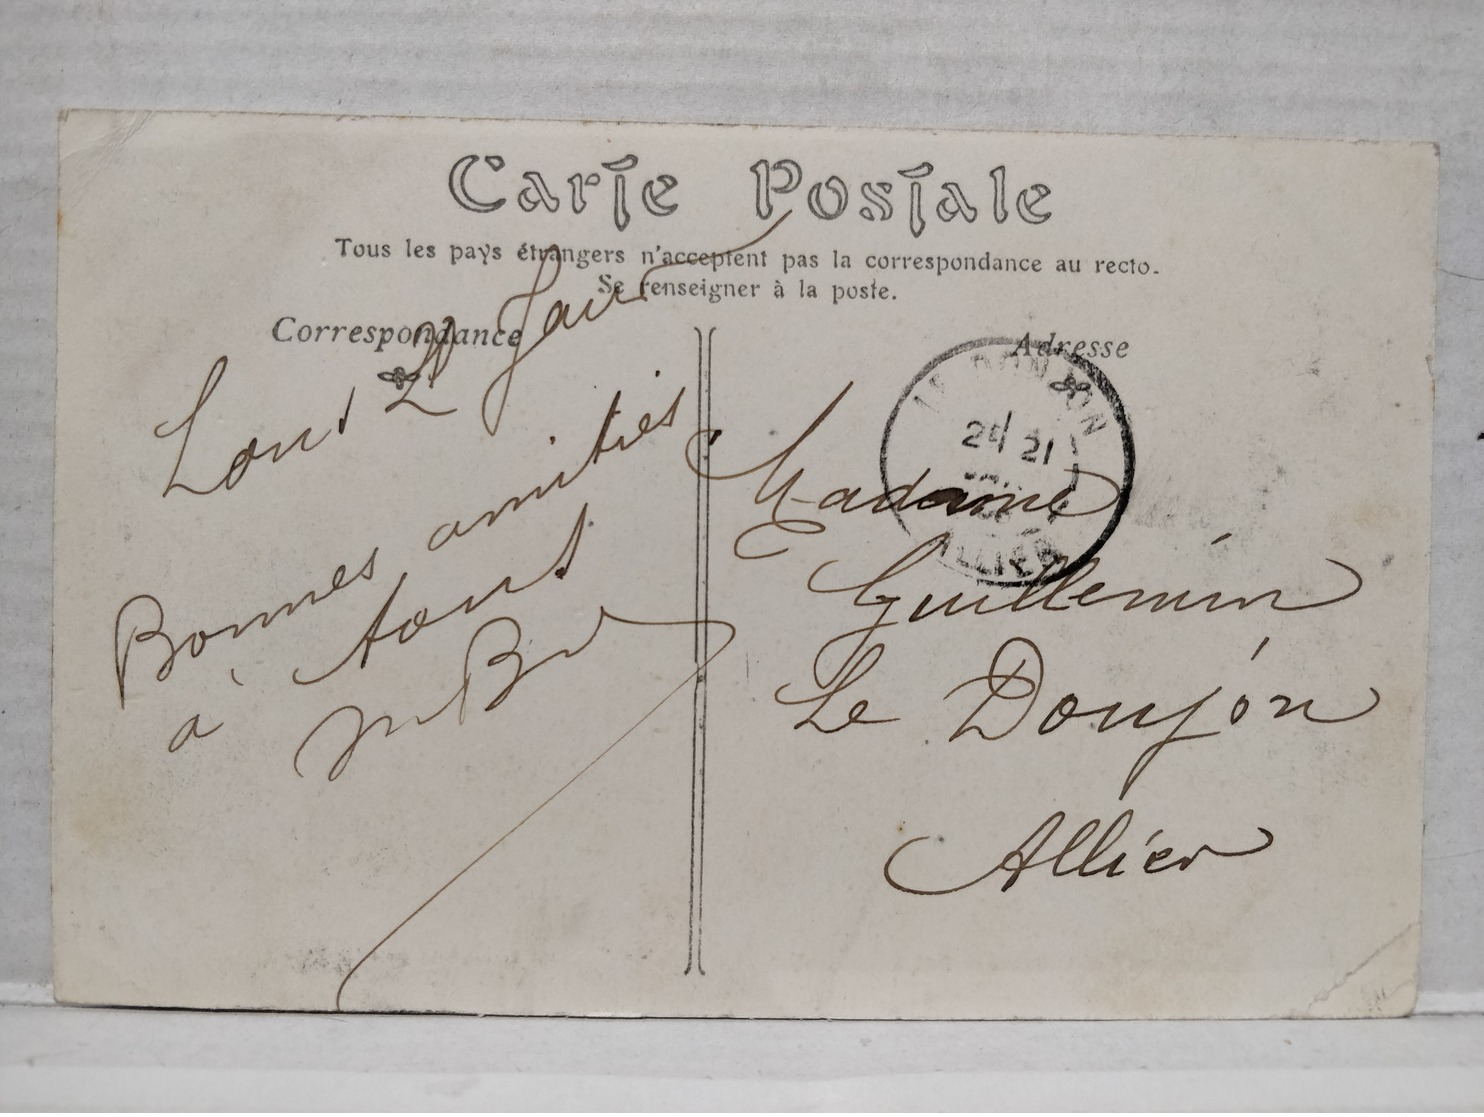 Carte Postale
Tous les pays étrangers n'acceptent pas la correspondance au recto.
Se renseigner à la poste.
Correspondance
Adresse
Bonnes amitiés
à tous
Madame
Guillemin
Le Donjon
Allier
LE DONJON
21
ALLIER